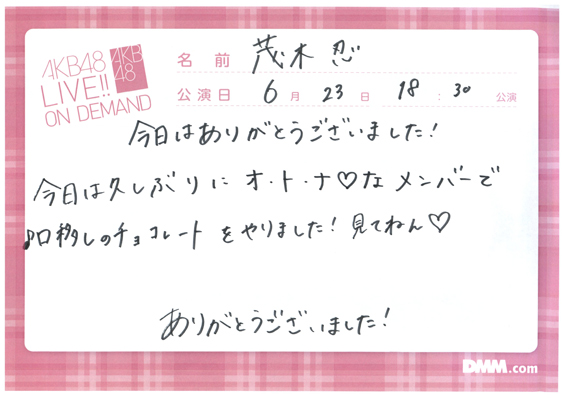 AKB48
LIVE!!
ON DEMAND
AKB
48
名前 茂木忍
公演日 6月23日 18:30 公演
今日はありがとうございました!
今日は久しぶりに オ・ト・ナ♡な メンバーで
♪口移しのチョコレート をやりました! 見てねん♡
ありがとうございました!
DMM.com